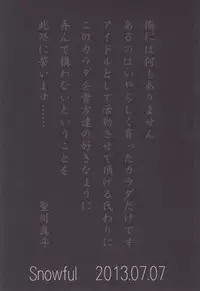 俺には何もありません
あるのはいやらしく育ったカラダだけです
アイドルとして活動させて頂ける代わりに
このカラダを貴方達の好きなように
弄んで構わないということを
此処に誓います……
聖川真斗
Snowful 2013.07.07